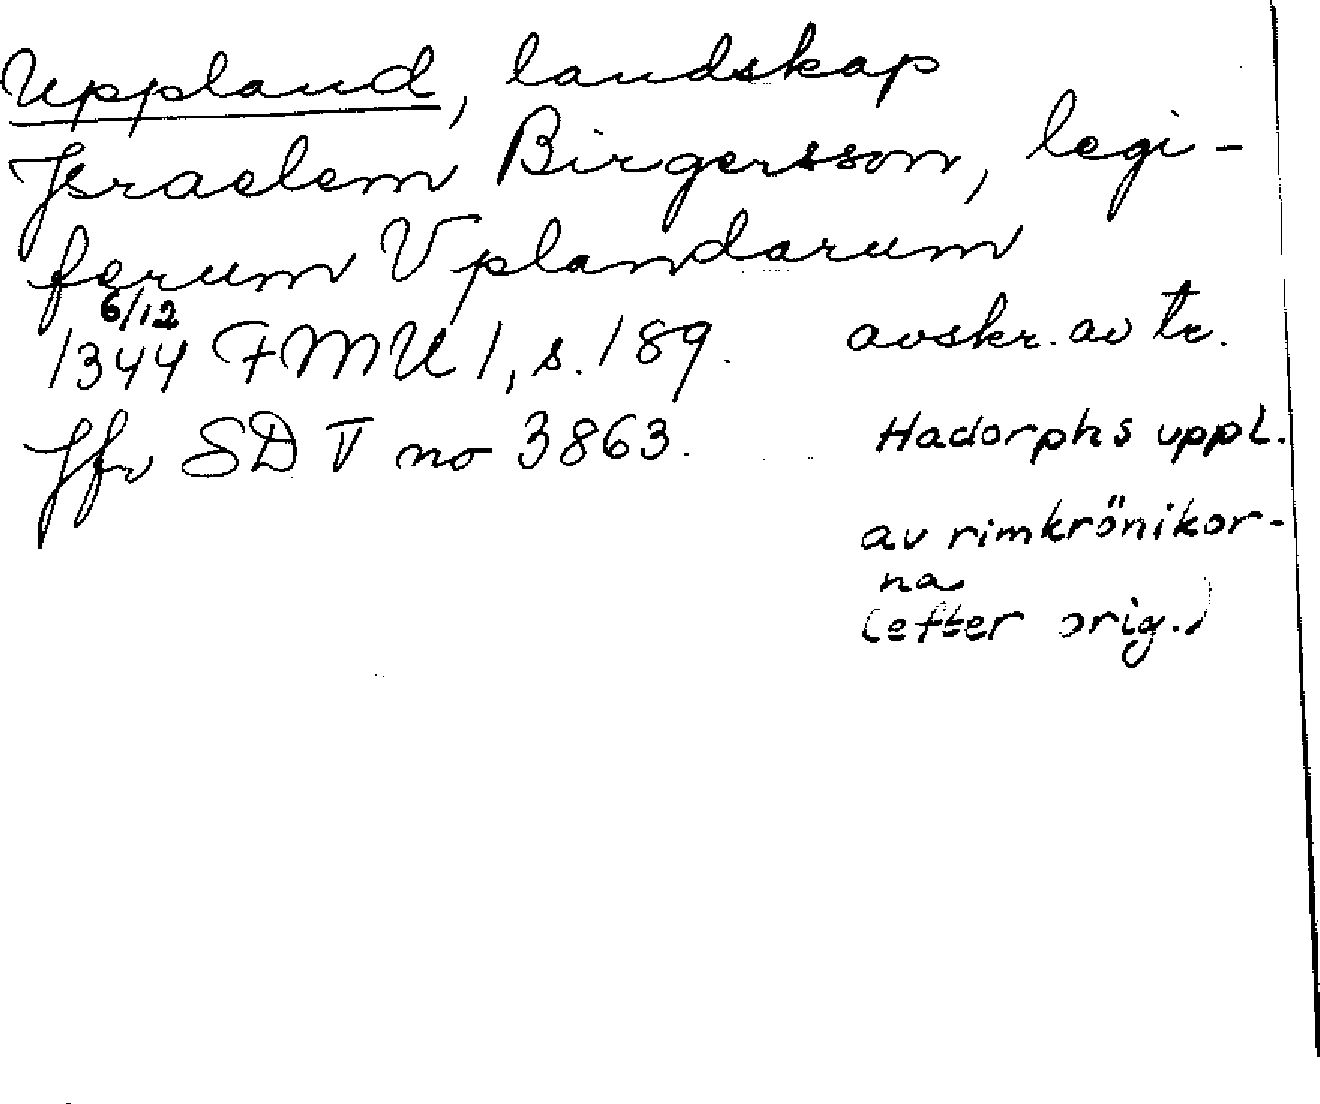 Uppland, landskap
Jsraelem Birgersson, legi-
ferum Vplandarum
6/12
1344 FMU 1, s. 189. avskr. av tr.
Jfr SD V no 3863. Hadorphs uppl.
av rimkrönikor-
na
(efter orig.)